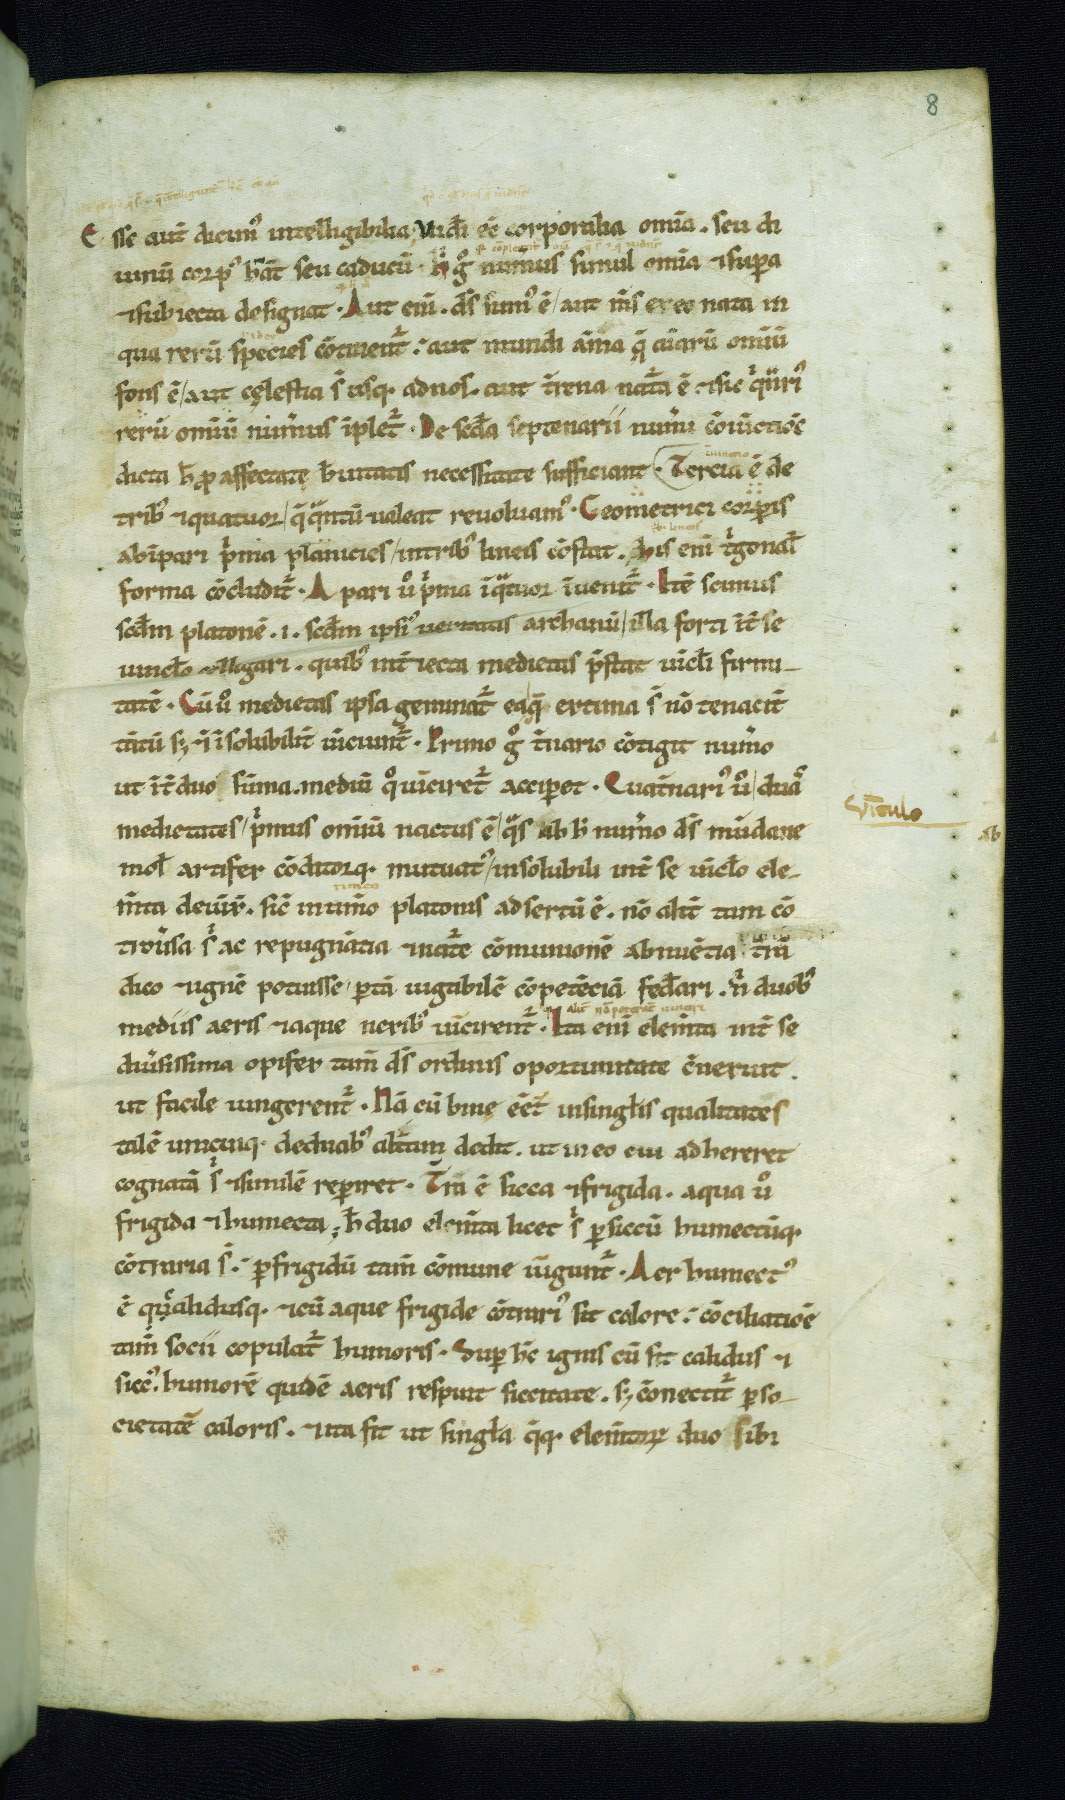 8
Esse aut̄ dicimꝰ intelligibilia, Uidr̄i eē corporalia omīa. seu di
uinū corpꝰ habāt seu caducū. h̓ g̊ num̄us simul omīa ⁊ supa
⁊ subiecta designat. Aut eni. ds̄ summꝰ ē / aut m̄s ex eo nata in
qua rerū species cōtinent᷑. aut mundi aīma q̄ aīarū omniū
fons ē / aut cęlestia s̄ usq. ad nos. aut t̄rena nat᷑a ē. ⁊ sic
rerū omniū num̄us īplet᷑. De scd̄a septenarii num̄i cōiūctiōe
dicta h̄ ꝓ affectatę b̄uitatis necessitate sufficiant. Tercia ē de
tribꝰ ⁊ quatuor / q̄ q̈ntū ualeat reuoluamꝰ. Geometrici corꝑis
ab īpari p̄ma planicies / in tribꝰ lineis cōstat. his eni t᷑gonal̄
forma cōcludit᷑. A pari ů p̄ma ī q̈tuor īuenit᷑. Itē scimus
scd̄m platonē .i. scd̄m ipsiꝰ ueritatis archanū / illa forti īt̄ se
uinclo colligari. quibꝰ int̄iecta medietas p̄stat uīcl̄i firmi-
tatē. Cū ů medietas ipsa geminat᷑ ea q̄ extima s̄ nō tenacit̄
tātū sꝫ ⁊ īsolubilit̄ uīciunt᷑. Primo g̊ t̄nario cōtigit num̄o
ut īt̄ duo sūma. mediū q̊ uīciret᷑ acciꝑet. Quat̄nariꝰ ů / duas
medietates / p̄mus omniū nactus ē / q̈s ab h̓ num̄o ds̄ mūdane
mol̄ artifex cōditorq. mutuatꝰ / insolubili int̄ se uīclo ele-
m̄ta deuīx̄. sic̄ in timęo platonis adsertū ē. nō alit̄ tam cō
trou̓sa s̄ ac repugnātia ⁊ nat᷑e cōmunionē abnuētia
dico ⁊ ignē potuisse / ꝑ tā iugabilē cōpetēciā fed̄ari. n̓ duobꝰ
mediis aeris ⁊ aque nexibꝰ uīcirent᷑. Ita eni elem̄ta int̄ se
diu̓sissima opifex tam̄ ds̄ ordinis oportunitate c̄nexuit.
ut facile iungerent᷑. Nā cū bine eēt̄ in singl̄is qualitates
talē unicuiq. de duabꝰ alt̄am dedit. ut in eo cui adhereret
cognatā s᷑ ⁊ similē reꝑiret. T̄ra ē sicca ⁊ frigida. aqua ů
frigida ⁊ humecta, h̄ duo elem̄ta licet s᷑ ꝑ siccū humectūq.
cōtraria s̄. ꝑ frigidū tam̄ cōmune iūgunt᷑. Aer humectꝰ
ē ⁊ calidusq. ⁊ cū aque frigide cōtrariꝰ sit calore. cōciliatiōe
tam̄ socii copulat᷑ humoris. Suꝑ hc̄ ignis cū sit calidus ⁊
siccꝰ. humorē quidē aeris respuit siccitate. sꝫ cōnectit᷑ ꝑ so-
cietatē caloris. ⁊ ita fit ut singl̄a q̄q. elem̄torꝝ duo sibi
Vīculo
ab